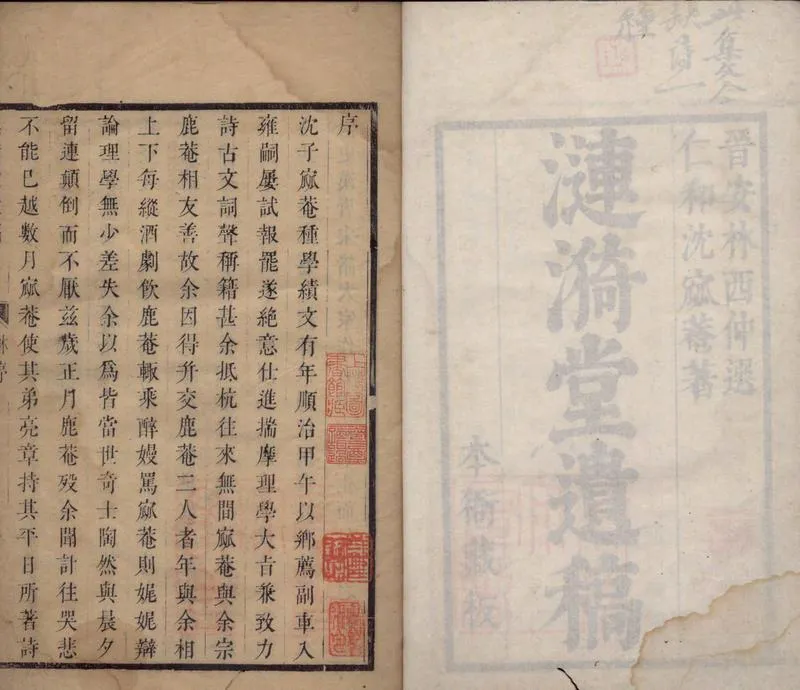 晉安林西仲選
仁和沈寙菴著
漣漪堂遺稿
本衙藏板
序
沈子寙菴種學績文有年順治甲午以鄉薦副車入
雍嗣屢試報罷遂絕意仕進揣摩理學大旨兼致力
詩古文詞聲稱籍甚余抵杭往來無間寙菴與余宗
鹿菴相友善故余因得幷交鹿菴三人者年與余相
上下每縱酒劇飲鹿菴輙乘醉嫚罵寙菴則娓娓辯
論理學無少差失余以爲皆當世奇士陶然與晨夕
留連顛倒而不厭茲歲正月鹿菴歿余聞訃往哭悲
不能已越數月寙菴使其弟亮章持其平日所著詩